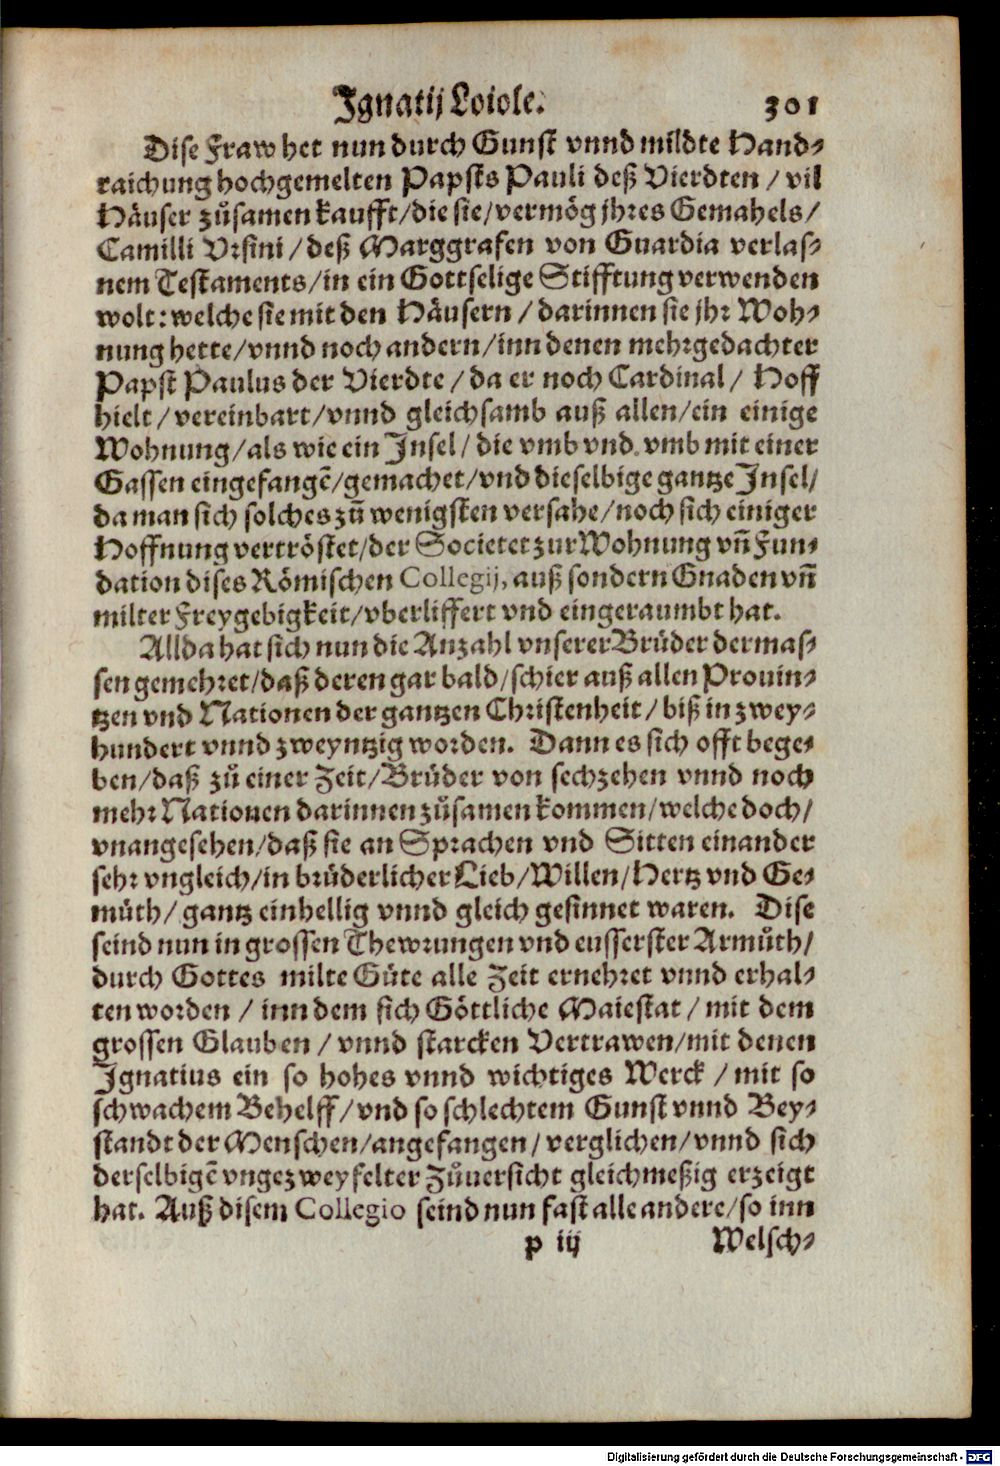 Ignatij Loiole. 301
Dise Fraw het nun durch Gunst vnnd mildte Hand-
raichung hochgemelten Papsts Pauli deß Vierdten / vil
Häuser zůsamen kaufft/die sie/vermög jhres Gemahels/
Camilli Vrsini / deß Marggrafen von Guardia verlas-
nem Testaments/in ein Gottselige Stifftung verwenden
wolt: welche sie mit den Häusern / darinnen sie jhr Woh-
nung hette/vnnd noch andern/inn denen mehrgedachter
Papst Paulus der Vierdte / da er noch Cardinal / Hoff
hielt / vereinbart/vnnd gleichsamb auß allen/ein einige
Wohnung/als wie ein Insel/ die vmb vnd vmb mit einer
Gassen eingefangē/gemachet/vnd dieselbige gantze Insel/
da man sich solches zů wenigsten versahe/noch sich einiger
Hoffnung vertröstet/der Societet zur Wohnung vñ Fun-
dation dises Römischen Collegij, auß sondern Gnaden vñ
milter Freygebigkeit/vberliffert vnd eingeraumbt hat.
Allda hat sich nun die Anzahl vnserer Brüder dermas-
sen gemehret/daß deren gar bald/schier auß allen Prouin-
tzen vnd Nationen der gantzen Christenheit / biß in zwey-
hundert vnnd zweyntzig worden. Dann es sich offt bege-
ben/daß zů einer Zeit/Brüder von sechzehen vnnd noch
mehr Nationen darinnen zůsamen kommen/welche doch/
vnangesehen/daß sie an Sprachen vnd Sitten einander
sehr vngleich/in brüderlicher Lieb/Willen/Hertz vnd Ge-
müth/ gantz einhellig vnnd gleich gesinnet waren. Dise
seind nun in grossen Thewrungen vnd eusserster Armůth/
durch Gottes milte Güte alle Zeit ernehret vnnd erhal-
ten worden / inn dem sich Göttliche Maiestat / mit dem
grossen Glauben / vnnd starcken Vertrawen/mit denen
Ignatius ein so hohes vnnd wichtiges Werck / mit so
schwachem Behelff/vnd so schlechtem Gunst vnnd Bey-
standt der Menschen/angefangen/verglichen/vnnd sich
derselbigē vngezweyfelter Zůuersicht gleichmeßig erzeigt
hat. Auß disem Collegio seind nun fast alle andere/so inn
p iij Welsch-
Digitalisierung gefördert durch die Deutsche Forschungsgemeinschaft - DFG